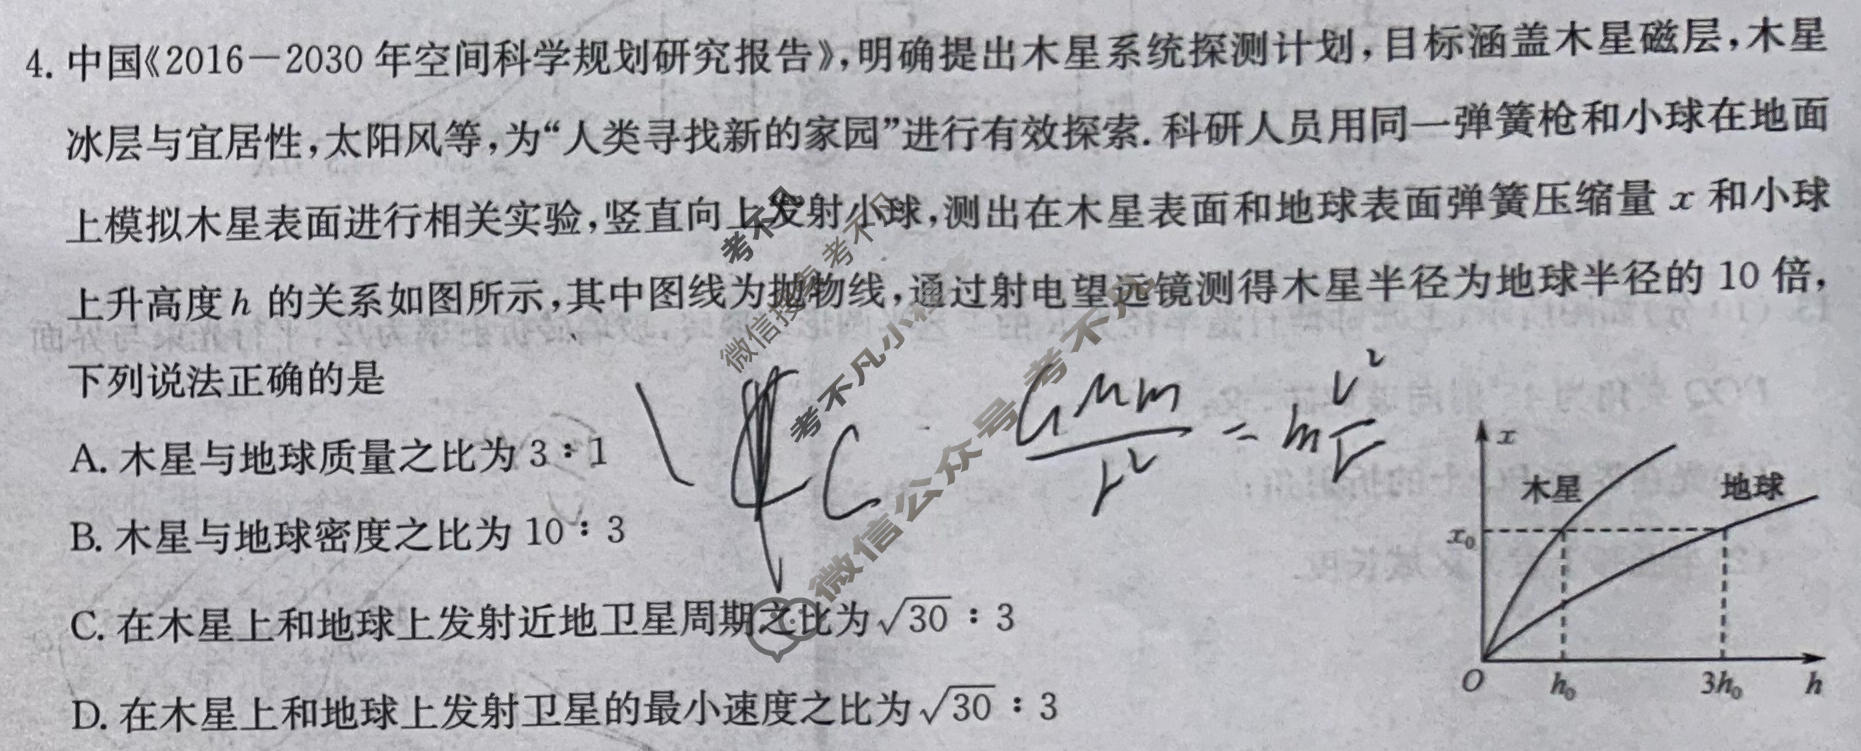 4. 中国《2016－2030 年空间科学规划研究报告》,明确提出木星系统探测计划,目标涵盖木星磁层,木星
冰层与宜居性,太阳风等,为“人类寻找新的家园”进行有效探索. 科研人员用同一弹簧枪和小球在地面
上模拟木星表面进行相关实验,竖直向上发射小球,测出在木星表面和地球表面弹簧压缩量 x 和小球
上升高度 h 的关系如图所示,其中图线为抛物线,通过射电望远镜测得木星半径为地球半径的 10 倍,
下列说法正确的是
A. 木星与地球质量之比为 3∶1
B. 木星与地球密度之比为 10∶3
C. 在木星上和地球上发射近地卫星周期之比为 √30∶3
D. 在木星上和地球上发射卫星的最小速度之比为 √30∶3
C
GMm/r² = m v²/r
x
木星
地球
x₀
O
h₀
3h₀
h
考不凡
微信搜索考不凡
考不凡小程序
微信公众号 考不凡